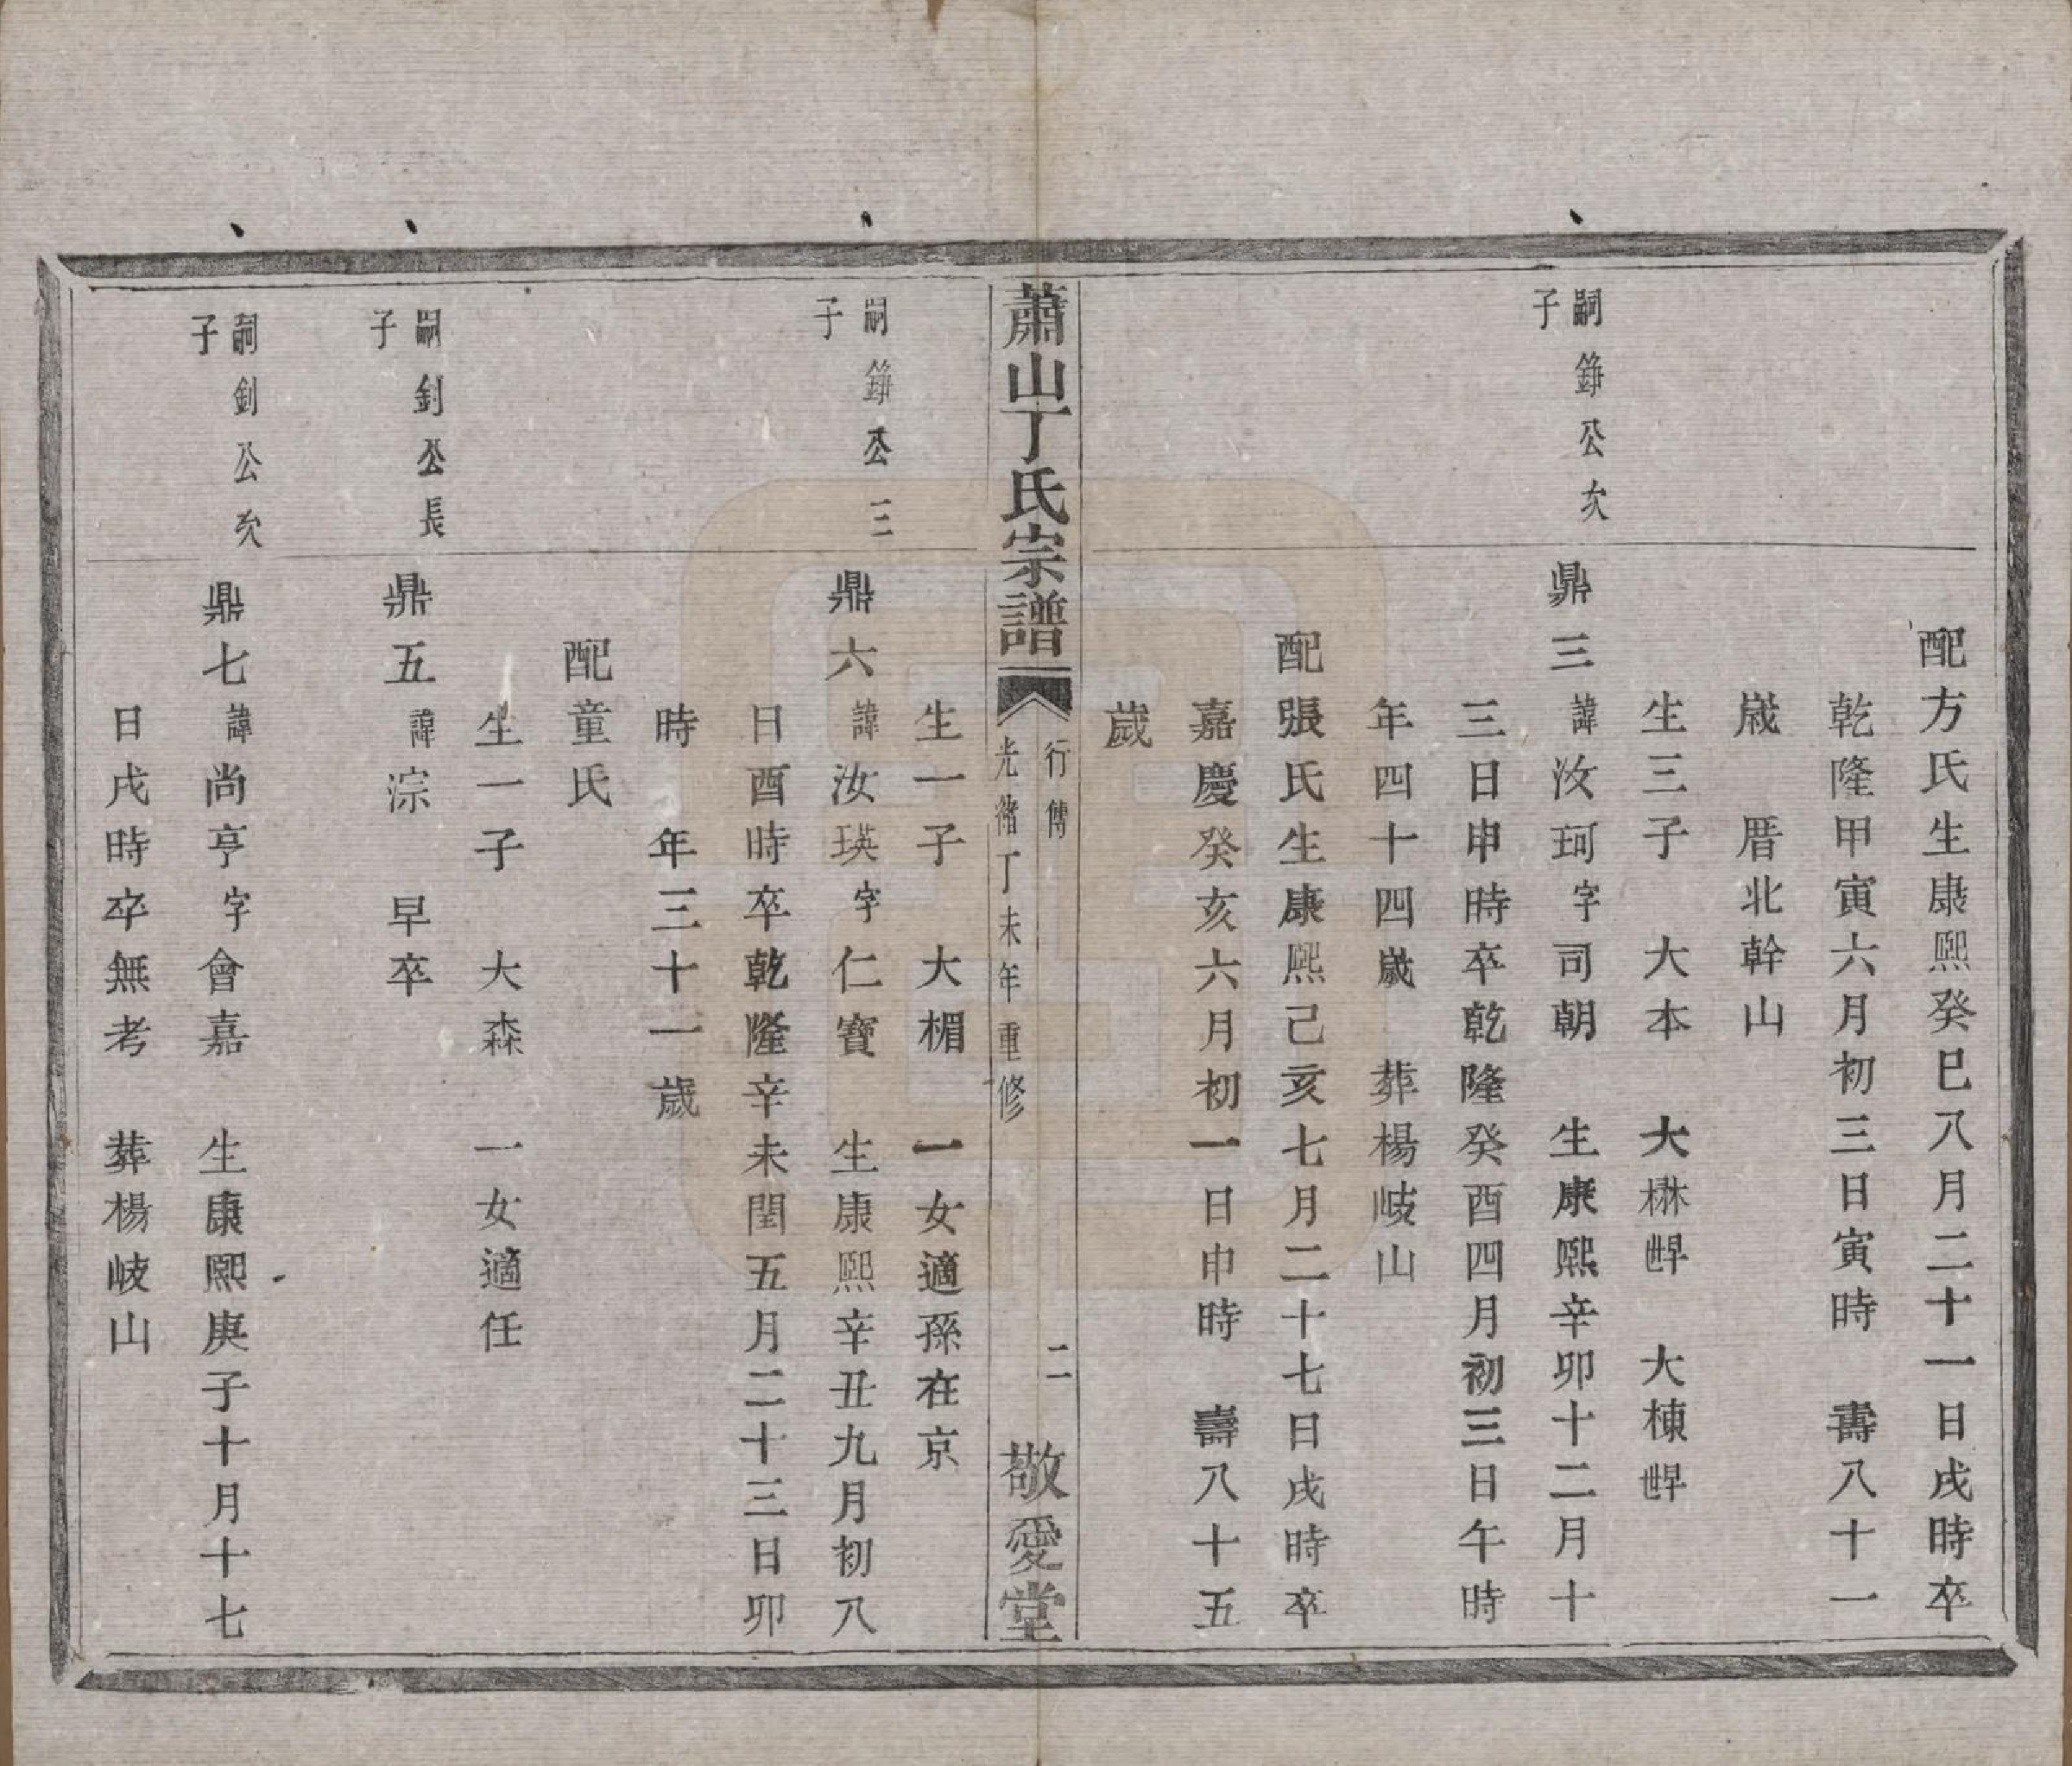 配方氏生康熙癸巳八月二十一日戌時卒
乾隆甲寅六月初三日寅時　壽八十一
歲　厝北幹山
生三子　大本　大㭒早世　大棟早世
嗣錚公次子
鼎三諱汝珂字司朝　生康熙辛卯十二月十
三日申時卒乾隆癸酉四月初三日午時
年四十四歲　葬楊岐山
配張氏生康熙己亥七月二十七日戌時卒
嘉慶癸亥六月初一日申時　壽八十五
歲
蕭山丁氏宗譜
行傳
光緒丁未年重修
二
敬愛堂
生一子　大楣　一女適孫在京
嗣錚公三子
鼎六諱汝瑛字仁寶　生康熙辛丑九月初八
日酉時卒乾隆辛未閏五月二十三日卯
時　年三十一歲
配童氏
生一子　大森　一女適任
嗣釗公長子
鼎五諱淙　早卒
嗣釗公次子
鼎七諱尚亨字會嘉　生康熙庚子十月十七
日戌時卒無考　葬楊岐山